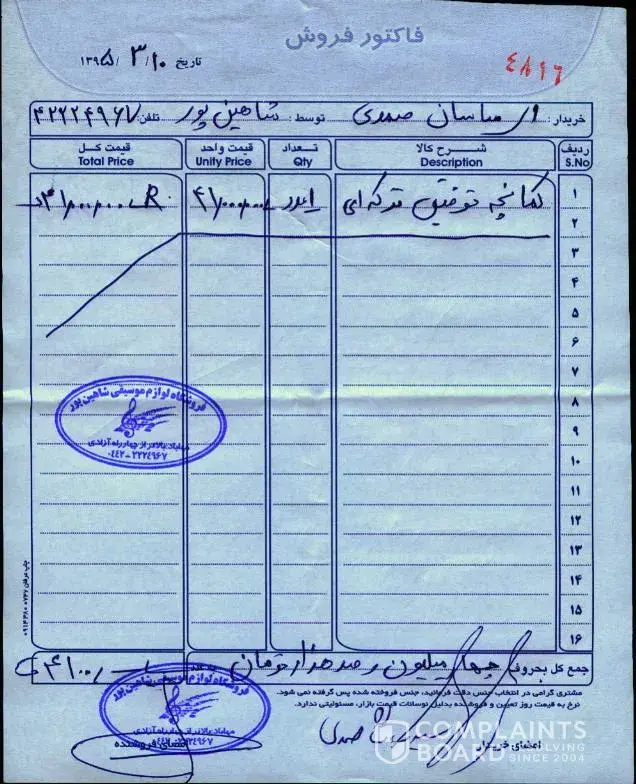 فاکتور فروش
تاریخ ۱۰ / ۳ / ۱۳۹۵
۴۸۱۶
خریدار: صمدی توسط: شاهین پور تلفن: ۴۲۲۲۴۹۶۷
ردیف شـرح کالا تـعـداد قیمت واحد قیمت کل
S.No Description Qty Unity Price Total Price
۱ کمانچه توفیقی ترکه‌ای
۲
۳
۴
۵
۶
۷
۸
۹
۱۰
۱۱
۱۲
۱۳
۱۴
۱۵
۱۶
فروشگاه لوازم موسیقی شاهین پور
مهاباد بالاتر از چهارراه آزادی
۰۴۴۲-۲۲۲۴۹۶۷
جمع کل بحروف چهار میلیون و صد هزار تومان
مشتری گرامی در انتخاب جنس دقت فرمائید، جنس فروخته شده پس گرفته نمی شود.
نرخ به قیمت روز تعیین و فروشنده بدلیل نوسانات قیمت بازار، مسئولیتی ندارد.
فروشگاه لوازم موسیقی شاهین پور
مهاباد بالاتر از چهارراه آزادی
۰۴۴۲-۲۲۲۴۹۶۷
امضای خریدار صمدی امضای فروشنده
COMPLAINTS
BOARD
SINCE 2004